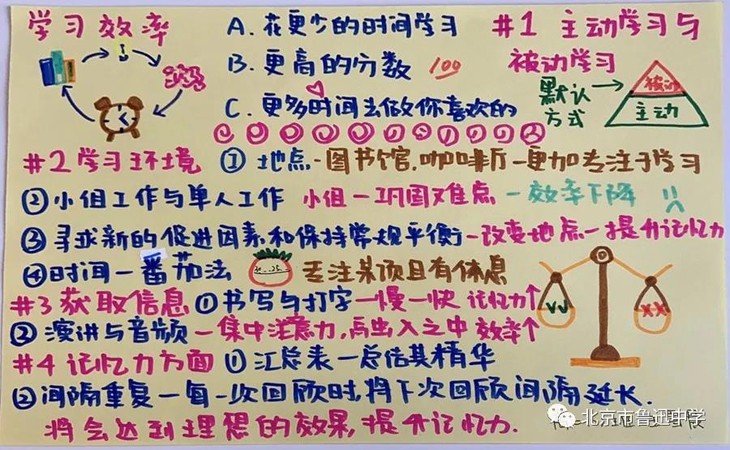 学习效率
A. 花更少的时间学习
B. 更高的分数 100
C. 更多时间去做你喜欢的
#1 主动学习与
被动学习
默认
方式
被动
主动
#2 学习环境 ① 地点-图书馆.咖啡厅-更加专注于学习
②小组工作与单人工作 小组-巩固难点-效率下降
③寻求新的促进因素和保持常规平衡-改变地点-提升记忆力
④时间-番茄法 专注某项且有休息
#3 获取信息 ①书写与打字-慢-快 记忆力↑
②演讲与音频-集中注意力,点出入之中 效率↑
#4 记忆力方面 ①汇总表-总结其精华
②间隔重复-每一次回顾时,将下次回顾间隔延长.
将会达到理想的效果,提升记忆力.
北京市鲁迅中学